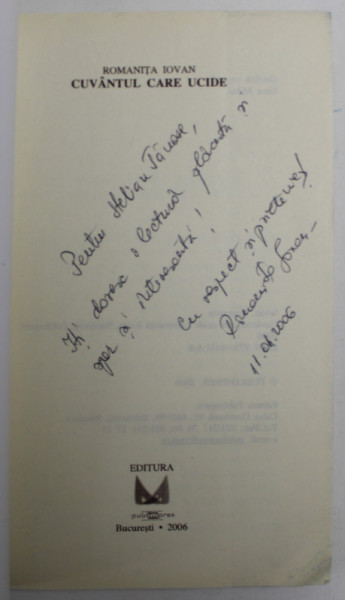 ROMANIȚA IOVAN
CUVÂNTUL CARE UCIDE
Pentru Stelian Tănase,
Îți doresc o lectură plăcută și
mai ș interesantă!
Cu respect și prietenie,
Romanița Iovan
2006
EDITURA
București • 2006